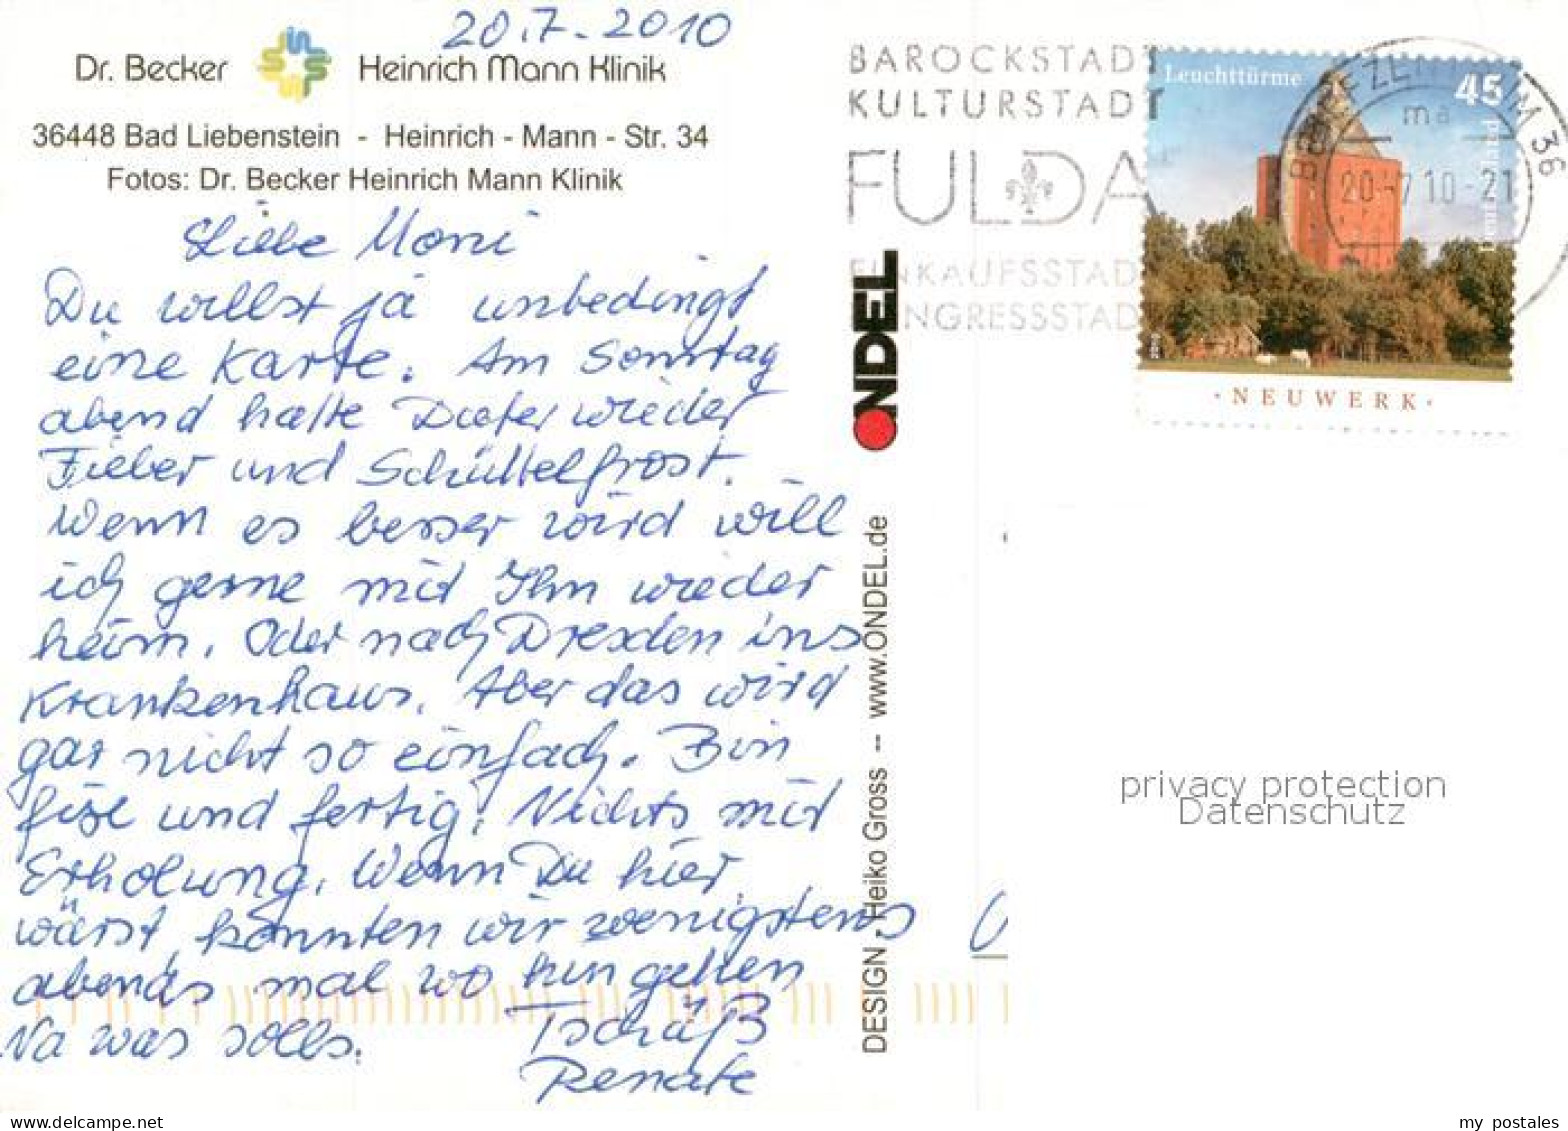 20.7.2010
Dr. Becker Heinrich Mann Klinik
36448 Bad Liebenstein - Heinrich - Mann - Str. 34
Fotos: Dr. Becker Heinrich Mann Klinik
Liebe Moni
Du willst ja unbedingt
eine Karte. Am Sonntag
abend hatte Dieter wieder
Fieber und Schüttelfrost.
Wenn es besser wird will
ich gerne mit Ihm wieder
heim. Oder nach Dresden ins
Krankenhaus. Aber das wird
gar nicht so einfach. Bin
fix und fertig. Nichts mit
Erholung. Wenn Du hier
wärst, könnten wir wenigstens
abends mal wo hin gehen
Na was solls.
Tschüß
Renate
DESIGN - Heiko Gross -- www.ONDEL.de
ONDEL
BAROCKSTADT
KULTURSTADT
FULDA
EINKAUFSSTADT
KONGRESSSTADT
BRIEFZENTRUM 36
ma
20.-7.10-21
Leuchttürme
45
Deutschland
2010
· NEUWERK ·
privacy protection
Datenschutz
my postales